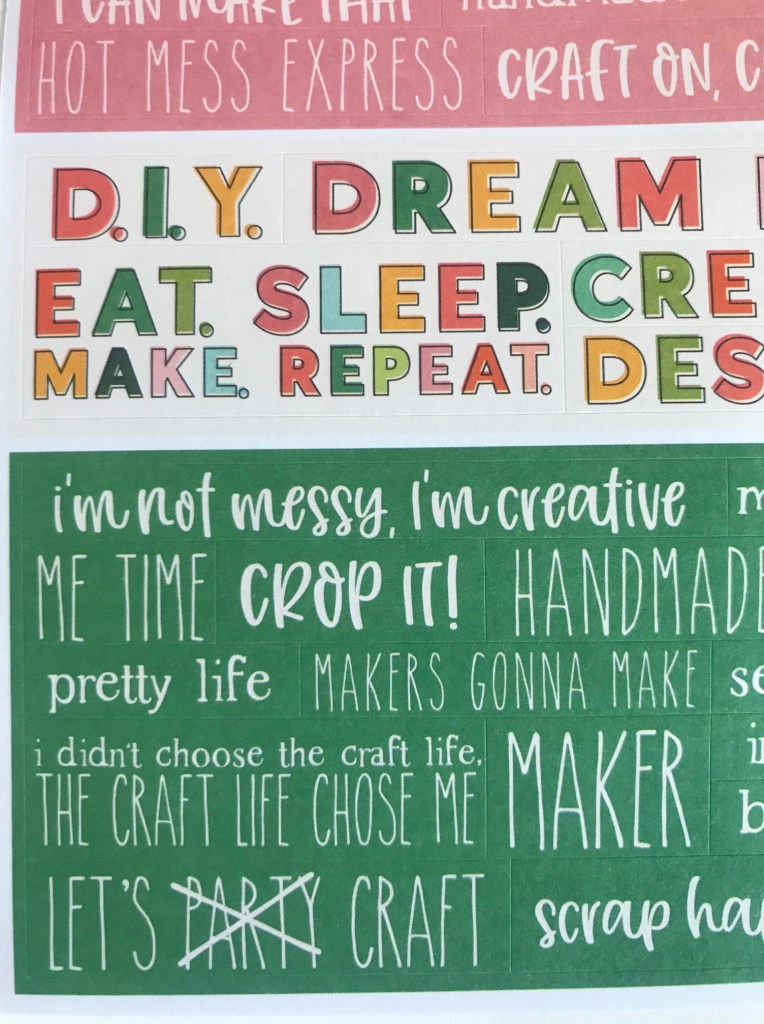 I CAN MAKE THAT handmade
HOT MESS EXPRESS CRAFT ON, C
D.I.Y. DREAM
EAT. SLEEP. CRE
MAKE. REPEAT. DES
i'm not messy, I'm creative m
ME TIME CROP IT! HANDMADE
pretty life MAKERS GONNA MAKE se
i didn't choose the craft life, MAKER i
THE CRAFT LIFE CHOSE ME b
LET'S PARTY CRAFT scrap ha